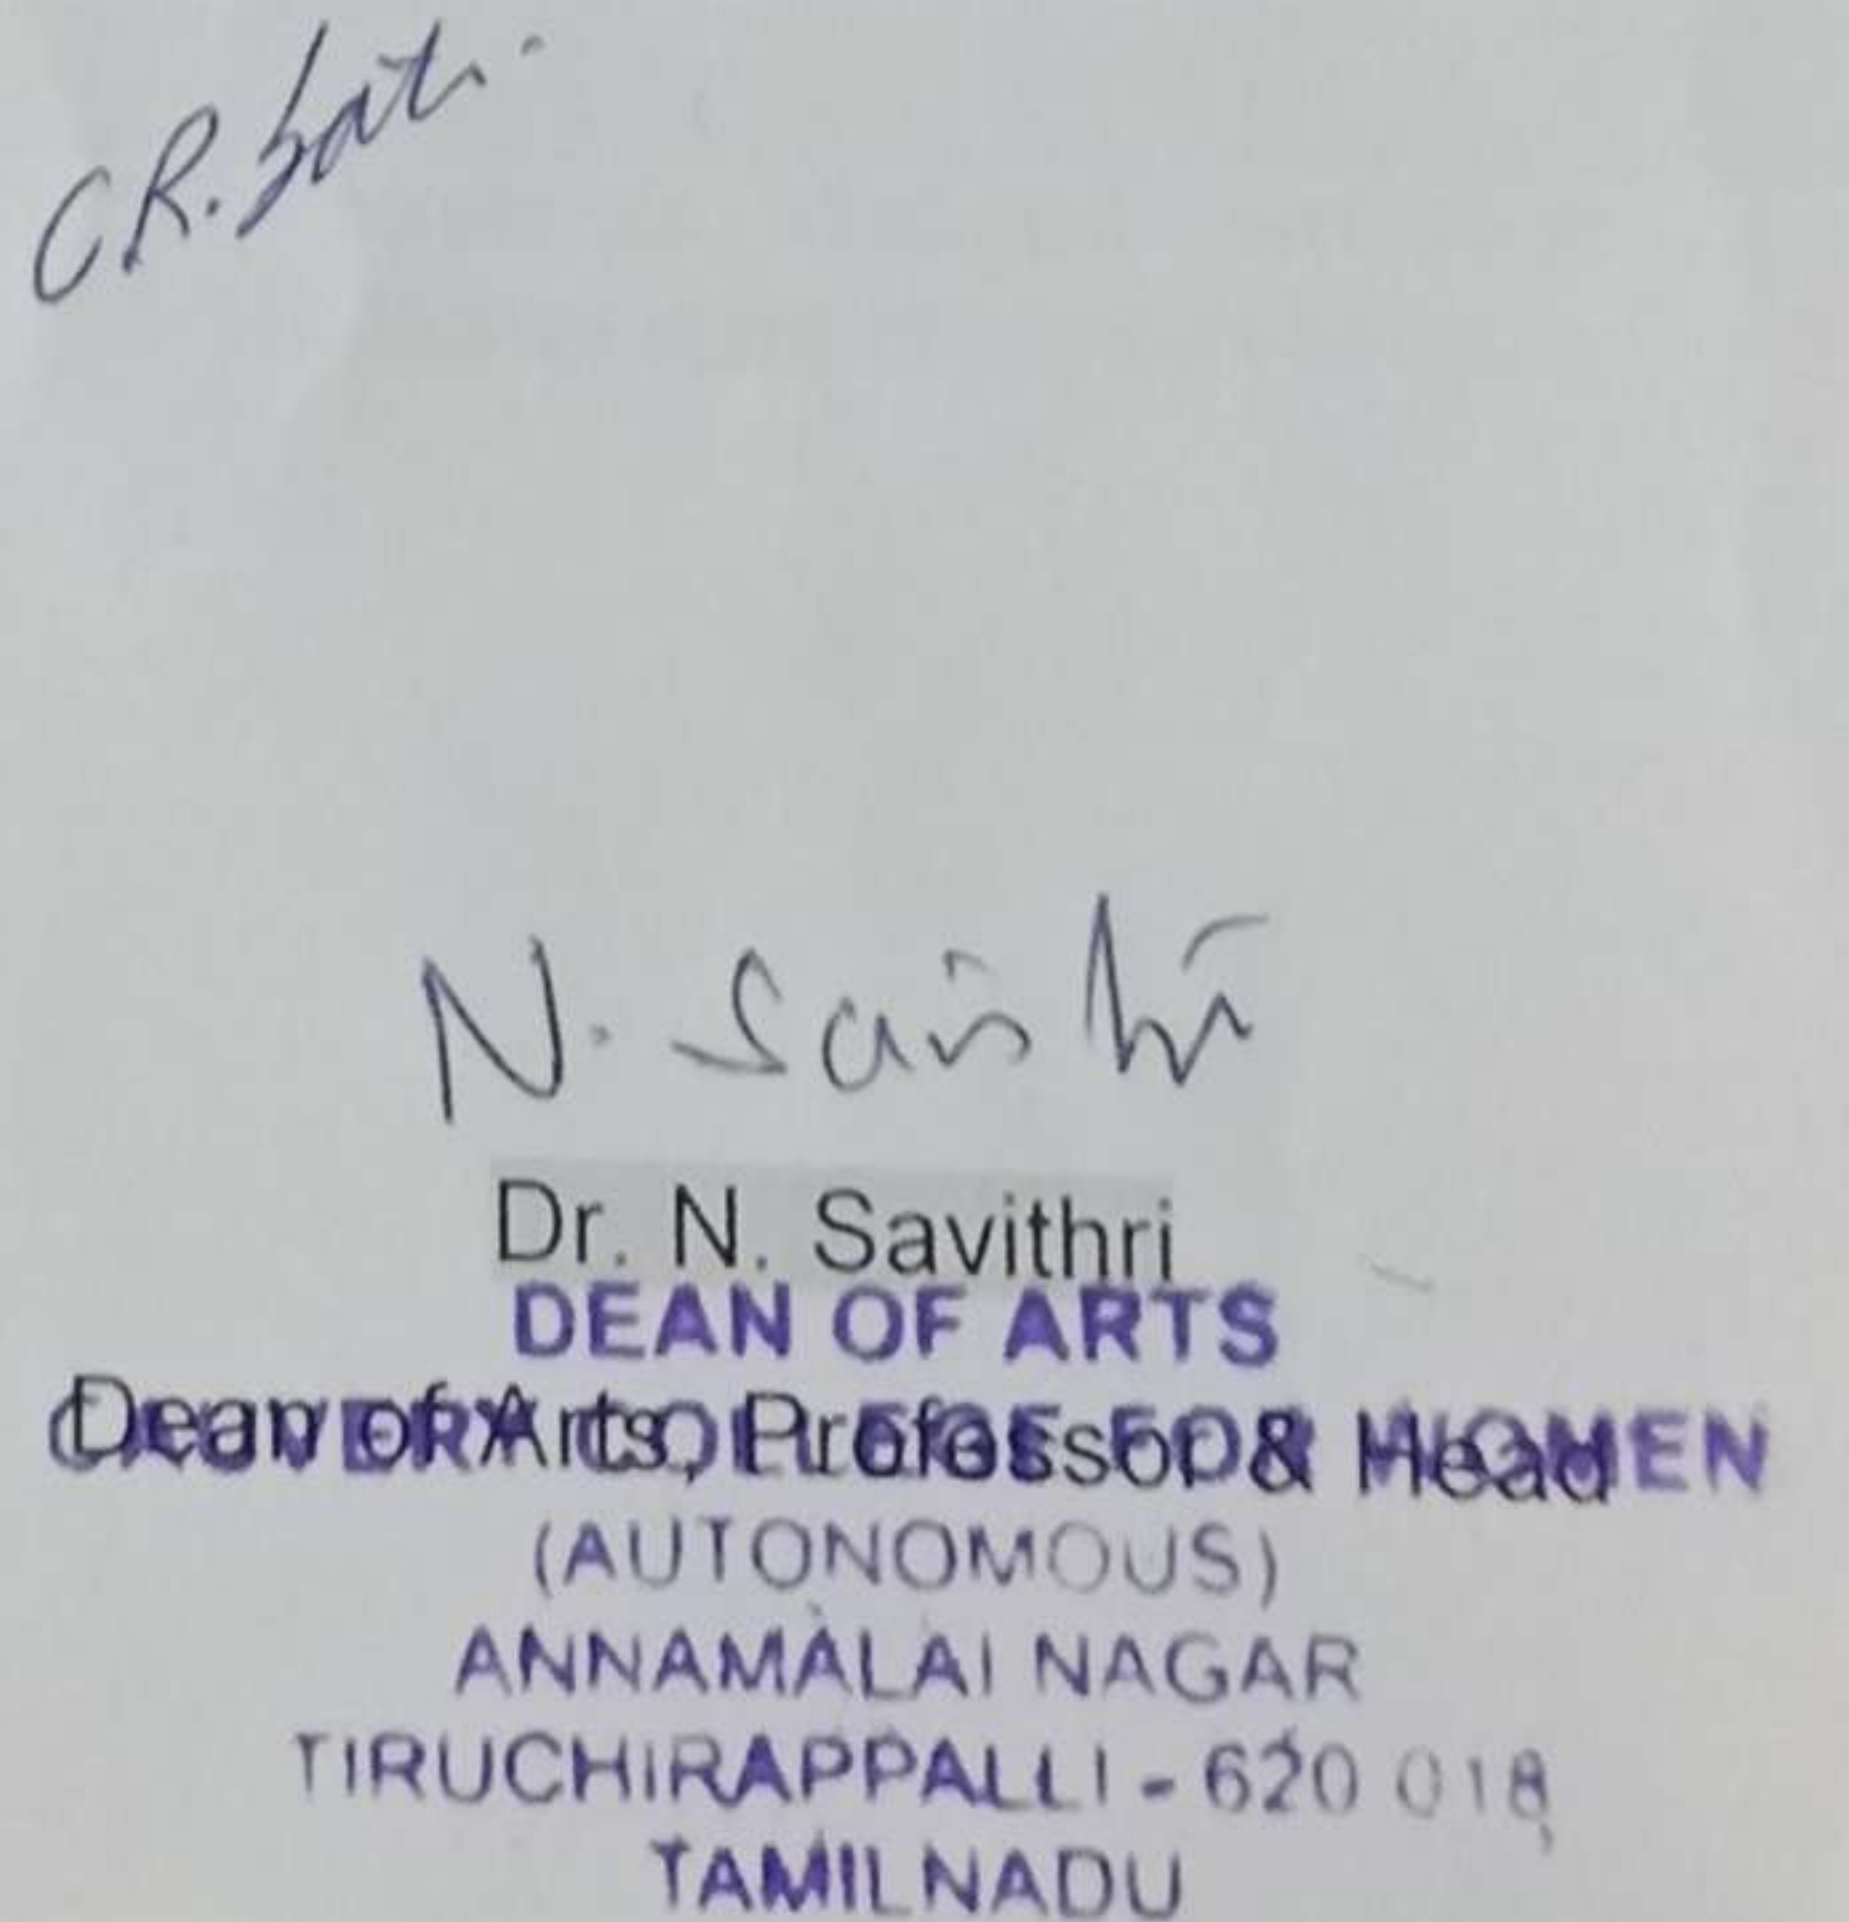 C R. Sati
N. Savithri
Dr. N. Savithri
DEAN OF ARTS
Dean of Arts, Professor & Head
CAUVERY COLLEGE FOR WOMEN
(AUTONOMOUS)
ANNAMALAI NAGAR
TIRUCHIRAPPALLI - 620 018
TAMILNADU